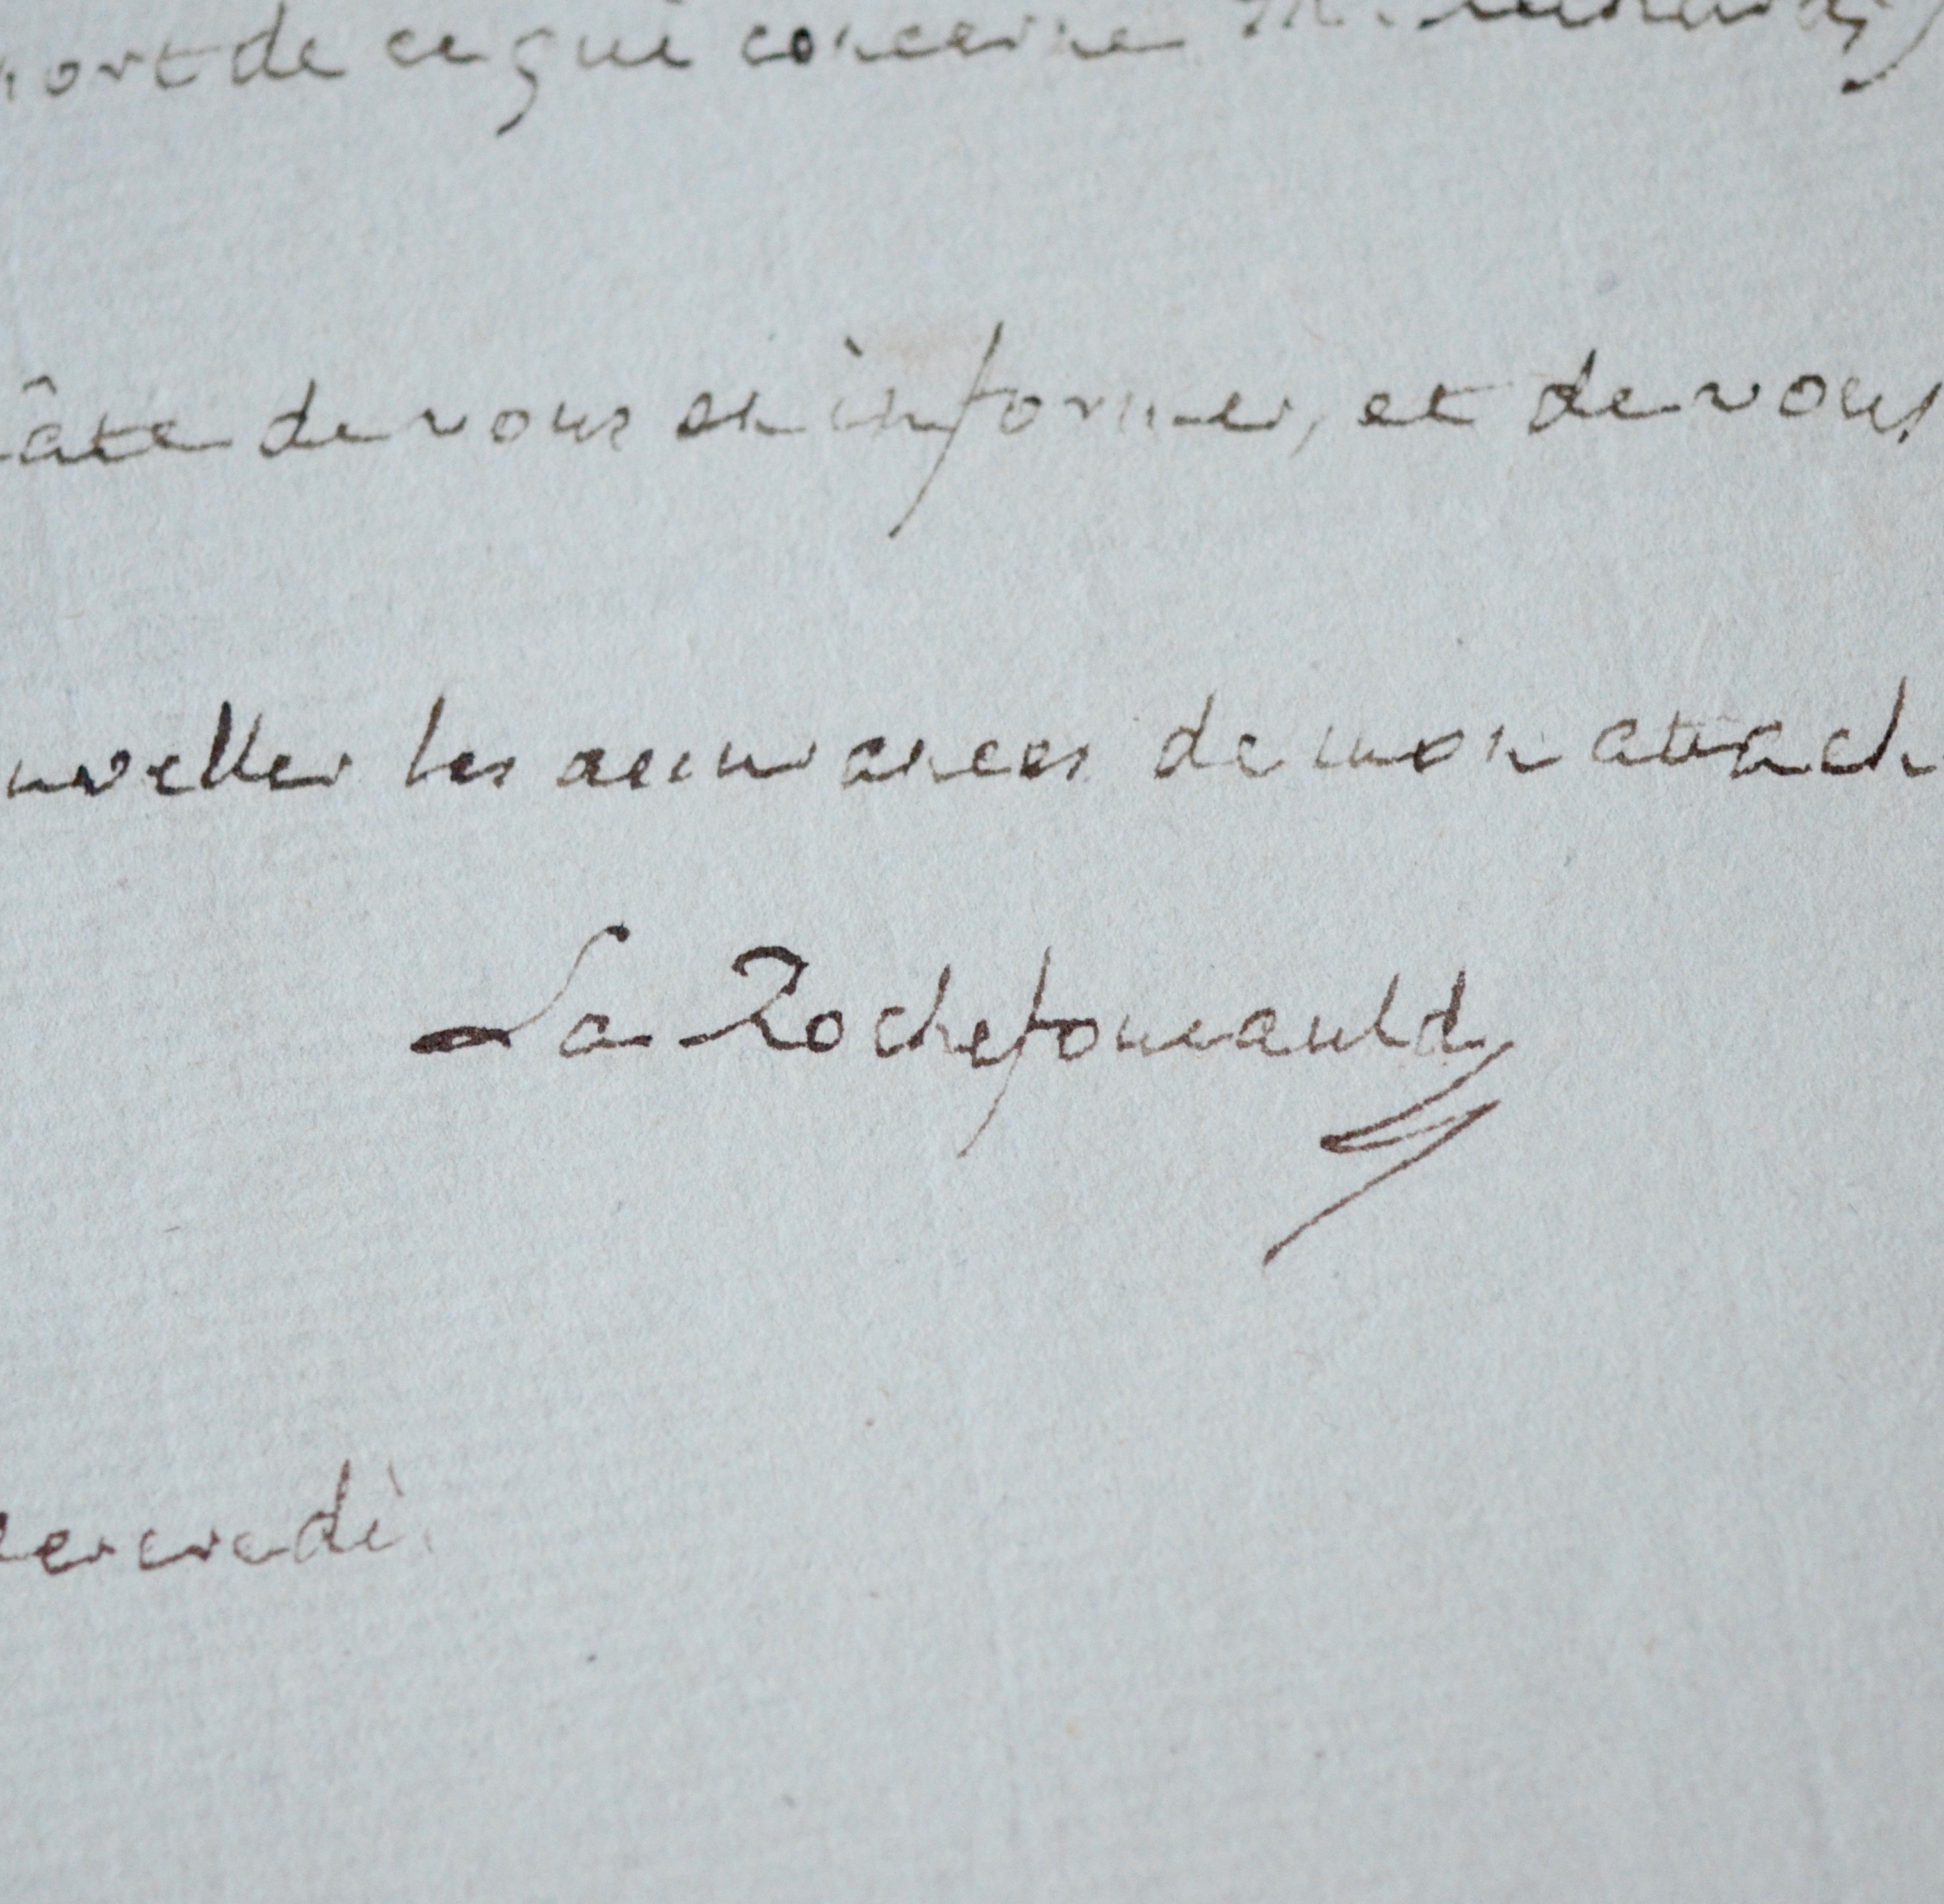 de ce qui concerne M.
âte de vous en informer, et de vous
uveller les assurances de mon attach
La Rochefoucauld
ercredi